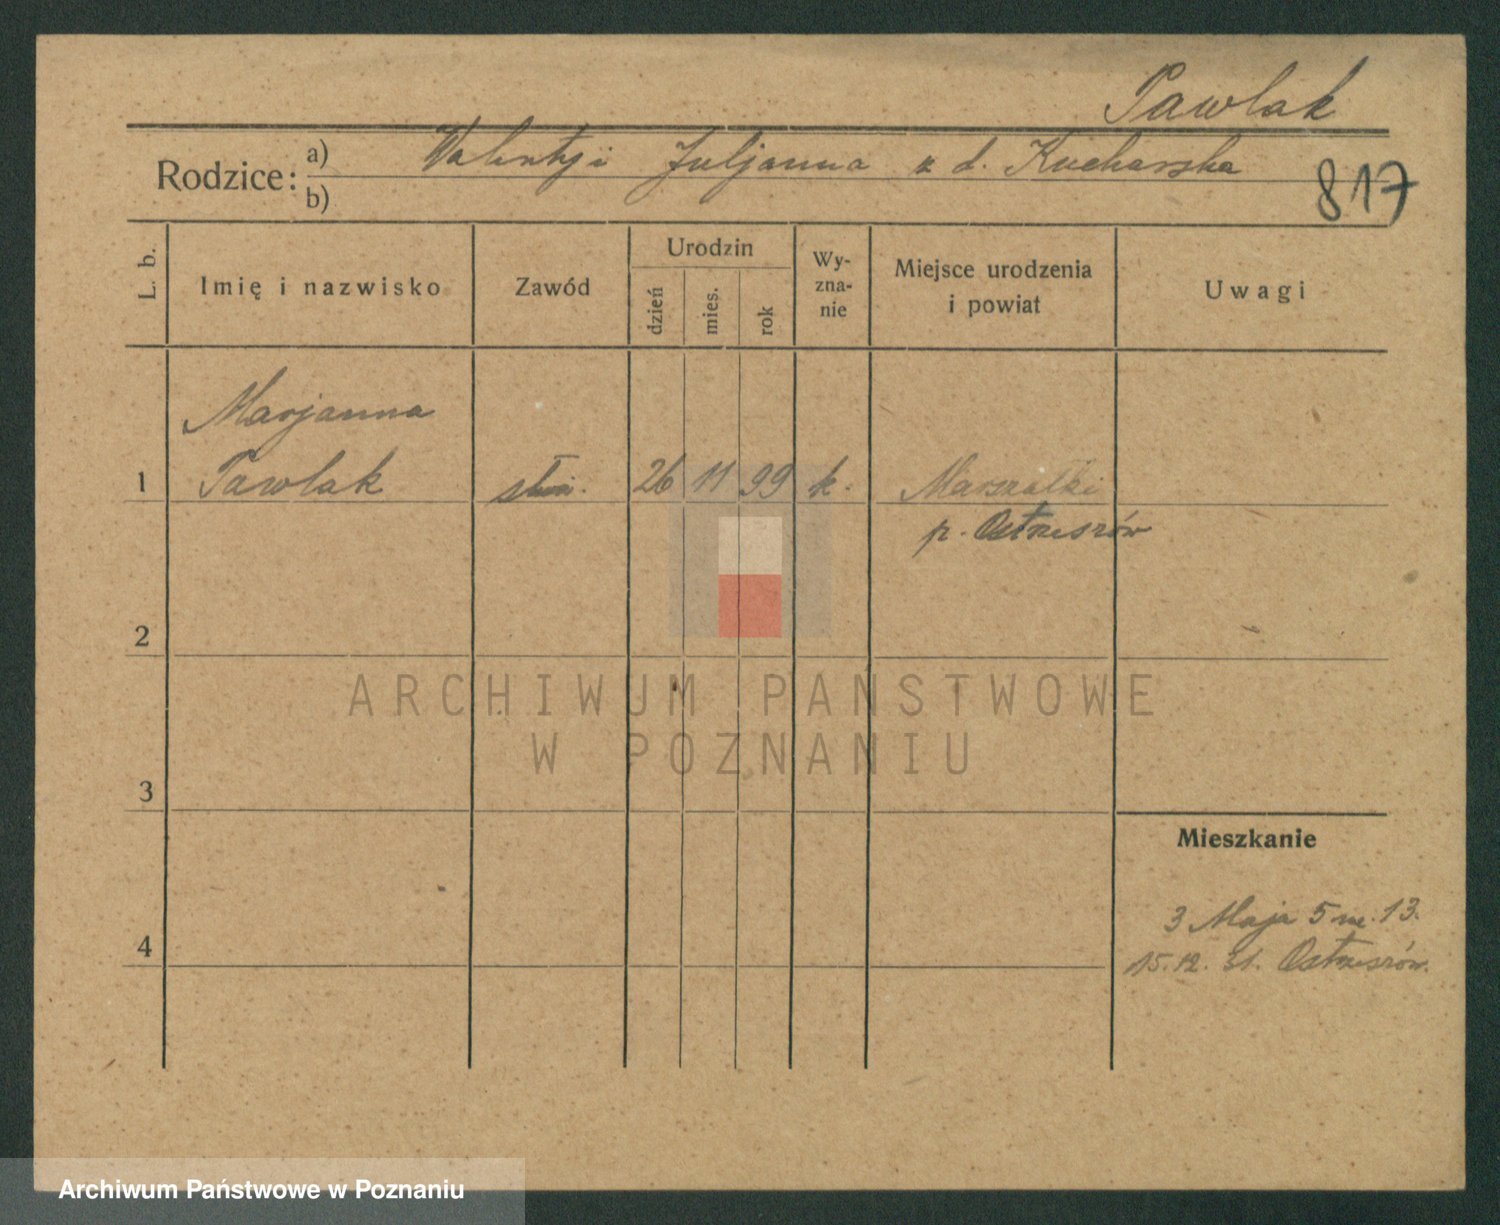 Pawlak
Rodzice: a) Walenty i Juljanna z d. Kucharska
b)
817
L. b.
Imię i nazwisko
Zawód
Urodzin
dzień
mies.
rok
Wy-
zna-
nie
Miejsce urodzenia
i powiat
Uwagi
Marjanna
1 Pawlak 26 11 99 k. Marszałki
p. Ostrzeszów
2
ARCHIWUM PAŃSTWOWE
W POZNANIU
3
Mieszkanie
3 Maja 5 m. 13.
4 15.12. 31. Ostrzeszów.
Archiwum Państwowe w Poznaniu